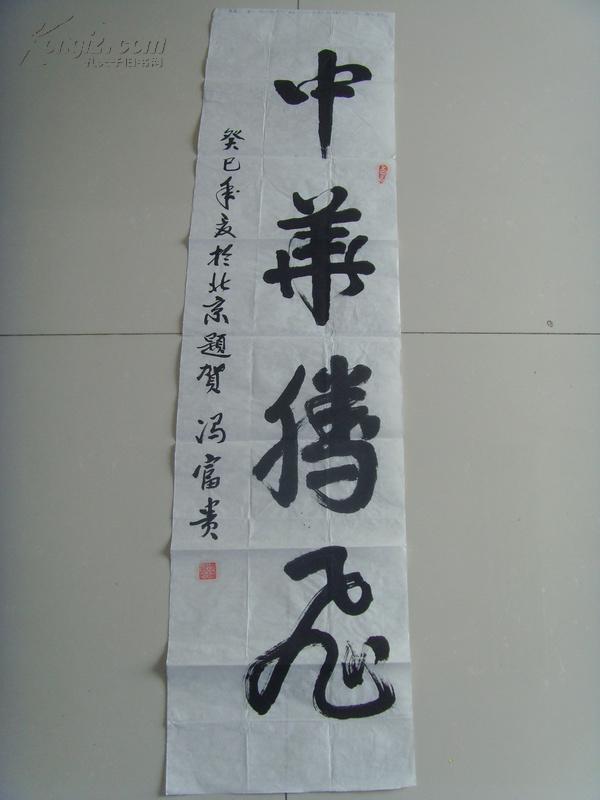 中華騰飛
癸巳年夏於北京題贺 冯富贵
Kongfz.com
孔夫子旧书网